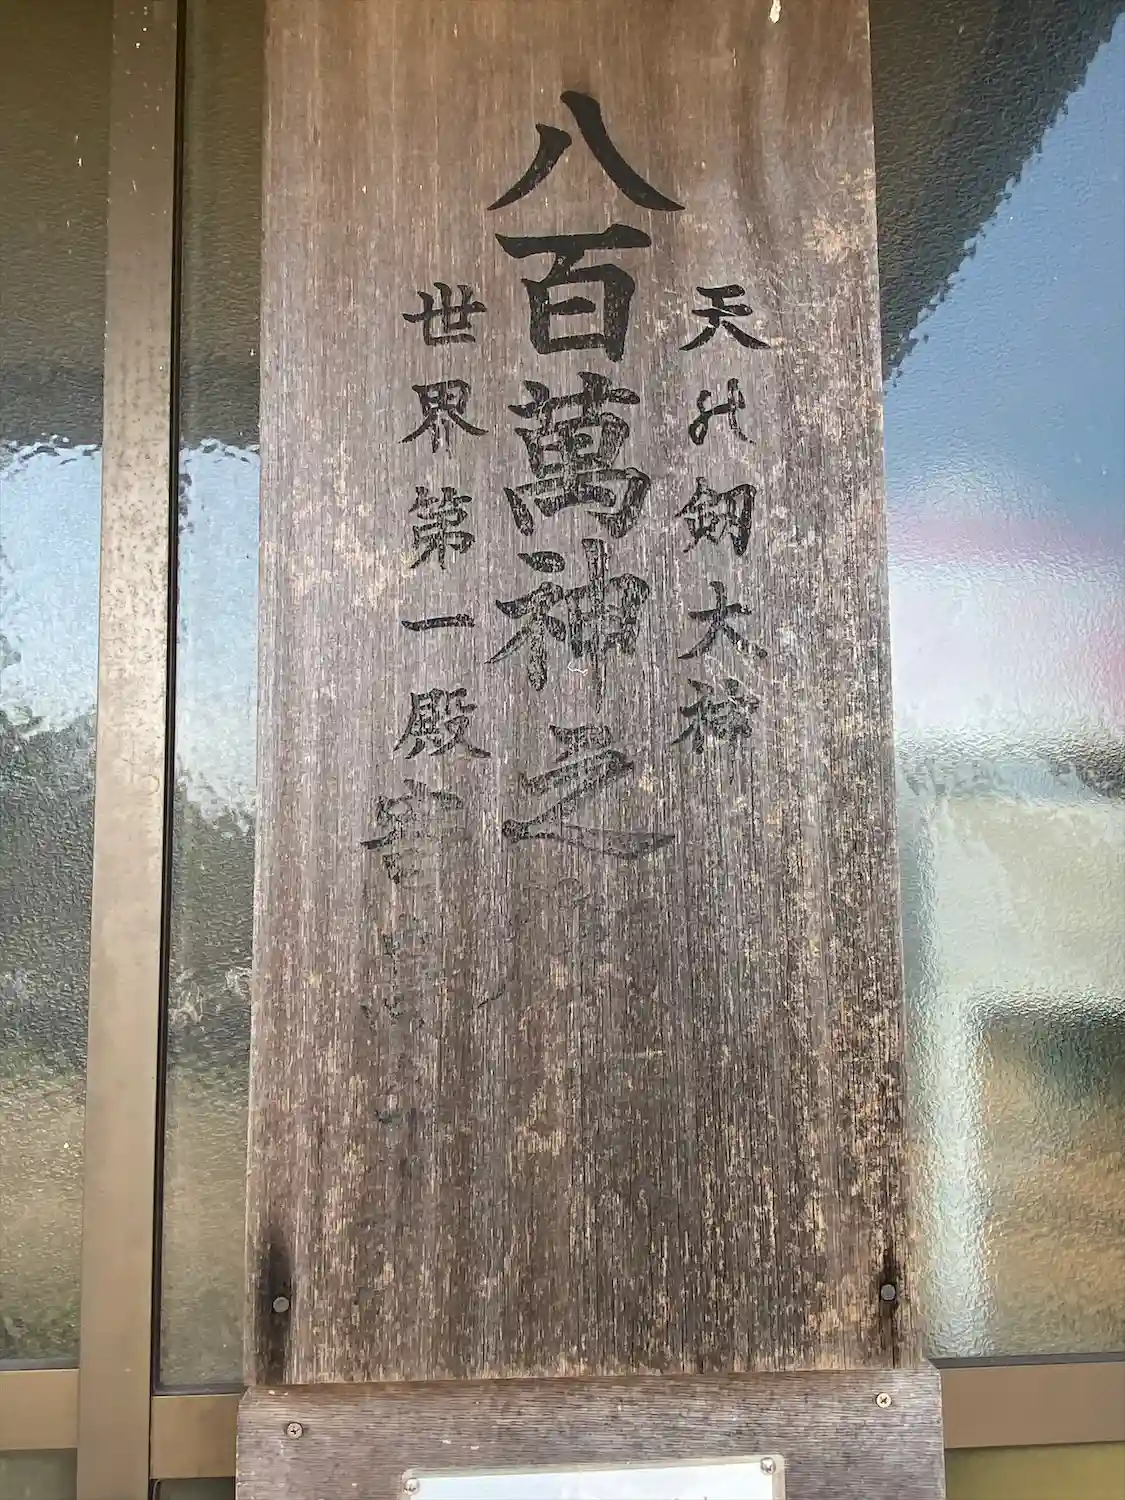 天の剱大神
八百萬神之
世界第一殿